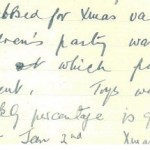 for Xmas va
ren's party wa
at which pa
ent. Toys w
percentage is g
Jan 2nd Xmas